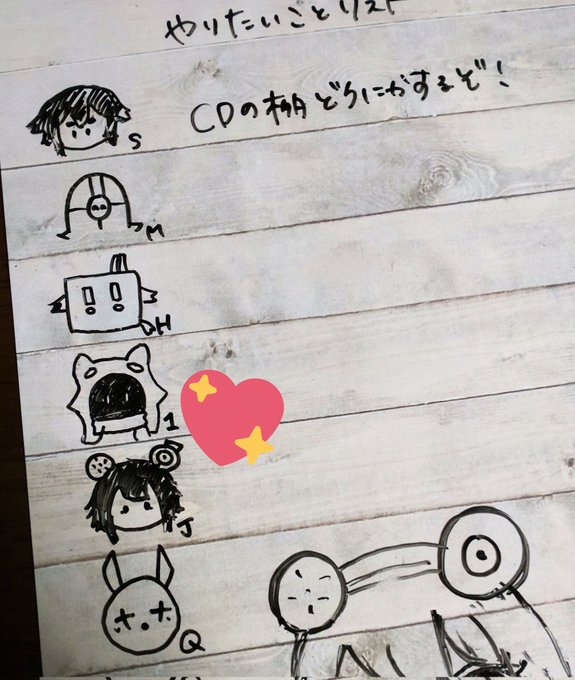 やりたいことリスト
CDの棚どうにかするぞ!
S
M
H
1
J
Q